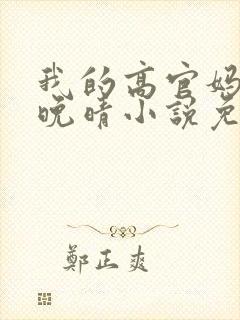 我的高官妈
晚晴小说免
鄭正爽